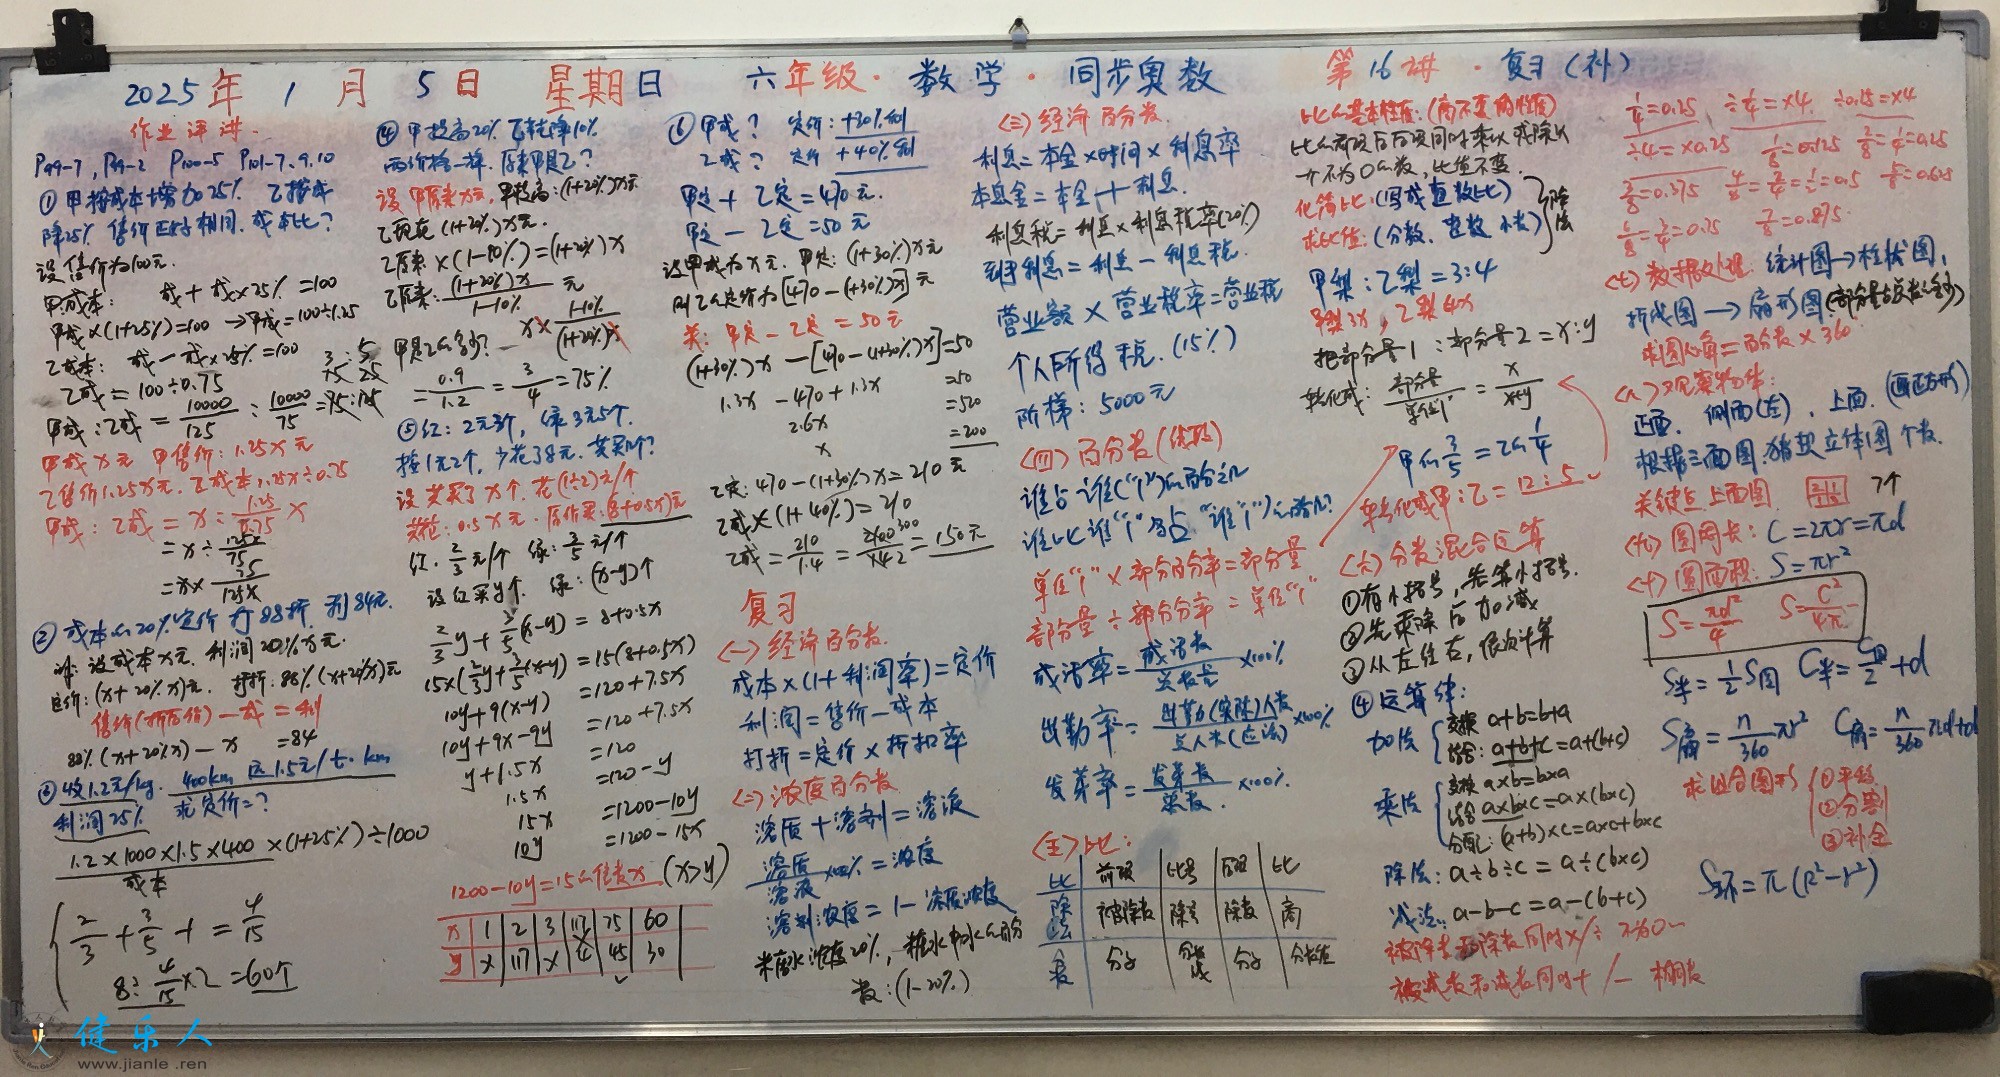 2025年 1月 5日 星期日 六年级·数学·同步奥数 第16讲·复习(补)
作业评讲.
P99-7, P99-2 P100-5 P101-7.9.10
①甲按成本增加25% 乙按成
降25% 售价正好相同. 成本比?
设售价为100元.
甲成本: 成+成×25%=100
甲成×(1+25%)=100 →甲成=100÷1.25
乙成本: 成-成×25%=100
乙成=100÷0.75
甲成:乙成=10000/125:10000/75=75:125
3:5
甲成x元 甲售价:1.25x元
乙售价1.25x元. 乙成本1.25x÷0.75
甲成:乙成=x:1.25/0.75 x
=x÷125x/75
=x×75/125x
②成本的20%定价 打88折, 利84元.
解:设成本x元, 利润20%x元.
定价:(x+20%x)元. 打折:88%(x+20%x)元
售价(折后价)-成=利
88%(x+20%x)-x=84
收1.2元/kg. 400km 运1.5元/t·km
利润25% 求定价=?
1.2×1000×1.5×400×(1+25%)÷1000
成本
2/3+3/5-1=4/15
8÷4/15×2=60个
④甲提高20% 乙降10%
两价格一样. 原来甲是乙?
设甲原来x元, 甲提高:(1+20%)x元
乙现在(1+20%)x元.
乙原来×(1-10%)=(1+20%)x
乙原来:(1+20%)x/1-10% 元
甲是乙的多少? x×1-10%/(1+20%)x
=0.9/1.2=3/4=75%
⑤红:2元3个, 绿3元5个.
按1元2个, 少花了8元. 共买?个?
设共买了x个. 花(1÷2)元/个
共花:0.5x元. 原价买:(8+0.5x)元
红:2/3元/个 绿:3/5元/个
设红买y个. 绿:(x-y)个
2/3y+3/5(x-y)=8+0.5x
15×(2/3y+3/5(x-y))=15(8+0.5x)
10y+9(x-y)=120+7.5x
10y+9x-9y=120+7.5x
y+1.5x=120
1.5x=120-y
15x=1200-10y
10y=1200-15x
1200-10y=15的倍数x (x>y)
x 1 2 3 117 75 60
y × 117 × 4 45 30
⑥甲成? 定价:+30%利
乙成? 定价+40%利
甲定+乙定=470元.
甲定-乙定=50元
设甲成为x元. 甲定:(1+30%)x元
则乙的定价为[470-(1+30%)x]元
关:甲定-乙定=50元
(1+30%)x-[470-(1+30%)x]=50
1.3x-470+1.3x=50
2.6x=520
x=200
乙定:470-(1+30%)x=210元
乙成×(1+40%)=210
乙成=210/1.4=150元
复习
(一)经济百分数.
成本×(1+利润率)=定价
利润=售价-成本
打折=定价×折扣率
(二)浓度百分数
溶质+溶剂=溶液
溶质/溶液×100%=浓度
溶剂浓度=1-溶质浓度
糖水浓度20%, 糖水中水的百分
数:(1-20%)
(三)经济百分数.
利息=本金×时间×利息率
本息金=本金+利息.
利息税=利息×利息税率(20%)
到手利息=利息-利息税.
营业额×营业税率=营业税
个人所得税.(15%)
阶梯:5000元
(四)百分数(线段)
谁占谁("1")的百分之几
谁比谁"1"多占"谁"1")的百分几?
单位"1"×部分百分率=部分量
部分量÷部分分率=单位"1"
成活率=成活数/总数量×100%
出勤率=出勤(实际)人数/总人数(应该)×100%
发芽率=发芽数/总数.×100%
(五)比:
比 前项 比号 后项 比
除法 被除数 除号 除数 商
分数 分子 分数线 分子 分数值
比的基本性质:(商不变的性质)
比的前项后项同时乘以或除以
一个不为0的数, 比值不变.
化简比:(写成整数比)
求比值:(分数、整数、小数) 除法
甲梨:乙梨=3:4
甲梨3x, 乙梨4x
把部分量1:部分量2=x:y
转化成:部分量/单位"1"=x/x+y
甲的3/5=乙的1/4
转化成甲:乙=12:5
(六)分数混合运算
①有小括号, 先算小括号.
②先乘除后加减
③从左往右, 依次计算
④运算律:
加法 交换 a+b=b+a
结合:a+b+c=a+(b+c)
乘法 交换 a×b=b×a
结合 a×b×c=a×(b×c)
分配:(a+b)×c=a×c+b×c
除法:a÷b÷c=a÷(b×c)
减法:a-b-c=a-(b+c)
被除数和除数同时×/÷ 不为0~
被减数和减数同时+/- 相同数
1/4=0.25 ÷1/4=×4 ÷0.25=×4
÷4=×0.25 1/8=0.125 2/8=1/4=0.25
3/8=0.375 4/8=2/4=1/2=0.5 5/8=0.625
6/8=3/4=0.75 7/8=0.875
(七)数据处理. 统计图→柱状图,
折线图→扇形图(部分量占总数的多少)
求圆心角=百分数×360
(八)观察物体:
正面, 侧面(左), 上面.(画正方形)
根据三面图.猜想立体图个数.
关键是上面图 7个
(九)圆周长:C=2πr=πd
(十)圆面积:S=πr²
S=πd²/4 S=C²/4π
S半=1/2S圆 C半=C圆/2+d
S扇=n/360πr² C扇=n/360πd+d
求组合图形 ①平移
②分割
③补全
S环=π(R²-r²)
健乐人
www.jianle.ren